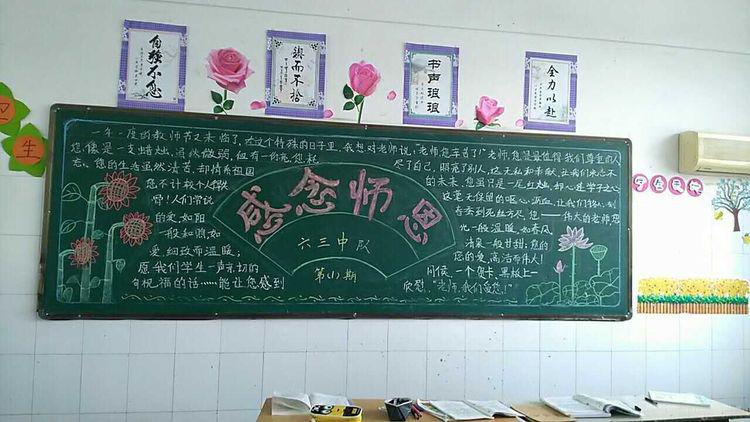 自强不息
锲而不舍
书声琅琅
全力以赴
卫
生
一年一度的教师节又来临了,在这个特殊的日子里,我想对老师说:老师,您辛苦了!"老师,您是最值得我们尊重的人
您像是一支蜡烛,虽然微弱,但有一份光,您耗
尽了自己,照亮了别人,这无私和奉献,让我们永志不
忘。您的生活虽然清苦,却
的未来,您虽只是一尾红烛,却心连学子之心
您不计较个人得
感念师恩
这毫无保留的呕心沥血,让我们铭心刻
呀!人们常说
骨春蚕到死丝方尽,您——伟大的老师,您
的爱,如阳
六三中队
光一般温暖,如春风
一般和煦,如
清泉一般甘甜;您的
爱,细致而温暖;
您的爱,高洁而伟大!
愿我们学生一声亲切的
第(1)期
问候,一个贺卡,黑板上一
句祝福的话……能让您感到
欣慰,"老师,我们爱您!"